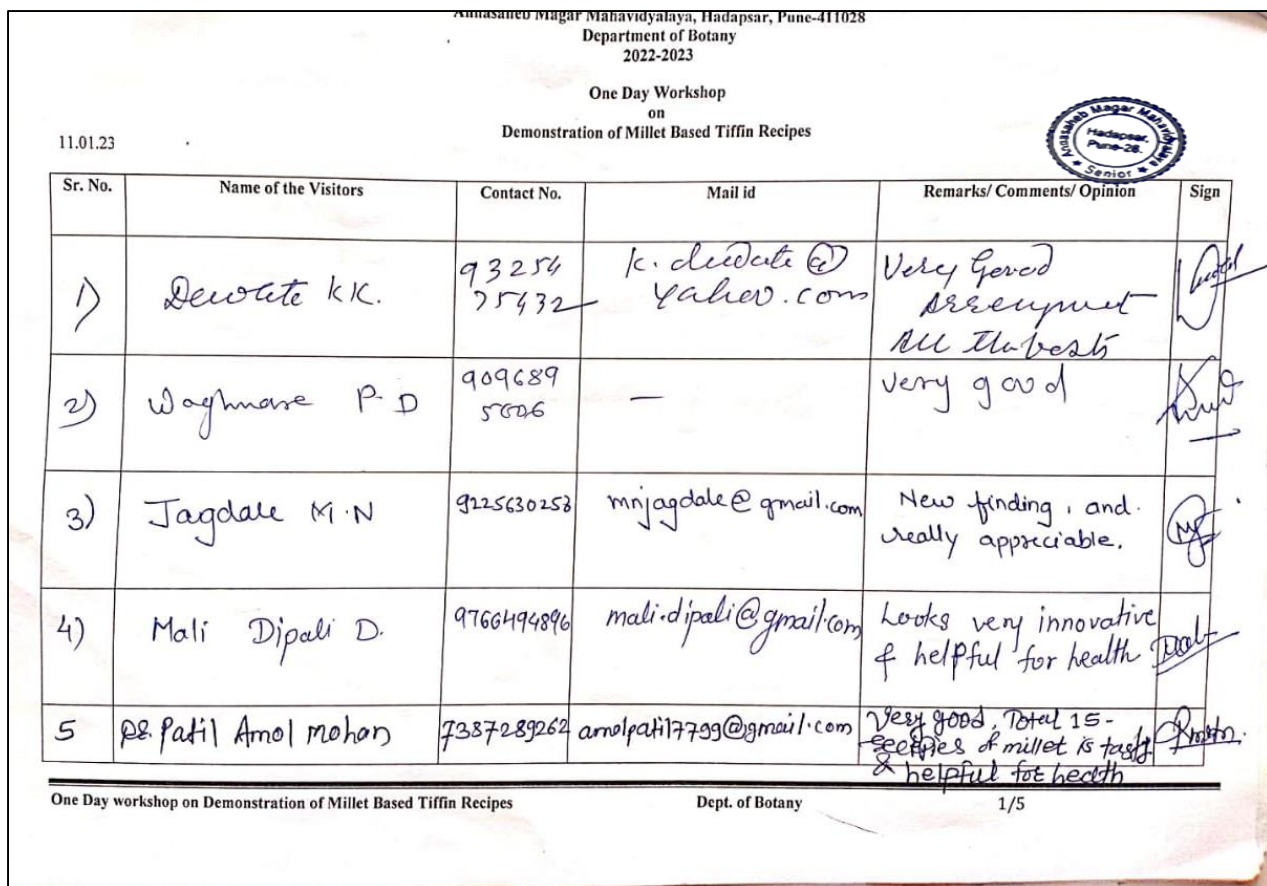 Annasaheb Magar Mahavidyalaya, Hadapsar, Pune-411028
Department of Botany
2022-2023
One Day Workshop
on
Demonstration of Millet Based Tiffin Recipes
11.01.23
Annasaheb Magar Mahavidyalaya
Hadapsar,
Pune-28.
★ Senior ★
Sr. No. Name of the Visitors Contact No. Mail id Remarks/ Comments/ Opinion Sign
1) KK. 93254 k. @ Very Good
75432 yahoo.com
All the bests
2) Waghmare P. D 909689 — very good
3) Jagdale M.N 9225630253 mnjagdale@gmail.com New finding, and
really appreciable.
4) Mali Dipali D. 9766494896 mali.dipali@gmail.com Looks very innovative
& helpful for health
5 Dr. Patil Amol Mohan 7387289262 amolpatil7799@gmail.com Very good, Total 15-
of millet is tasty
& helpful for health
One Day workshop on Demonstration of Millet Based Tiffin Recipes Dept. of Botany 1/5